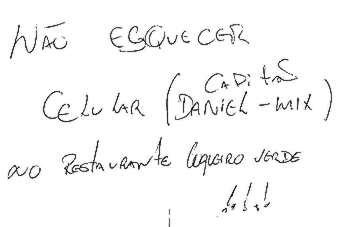 NÃO ESQUECER
CADITAS
CELULAR (DANIEL-MIX)
NO RESTAURANTE COQUEIRO VERDE
!!!!